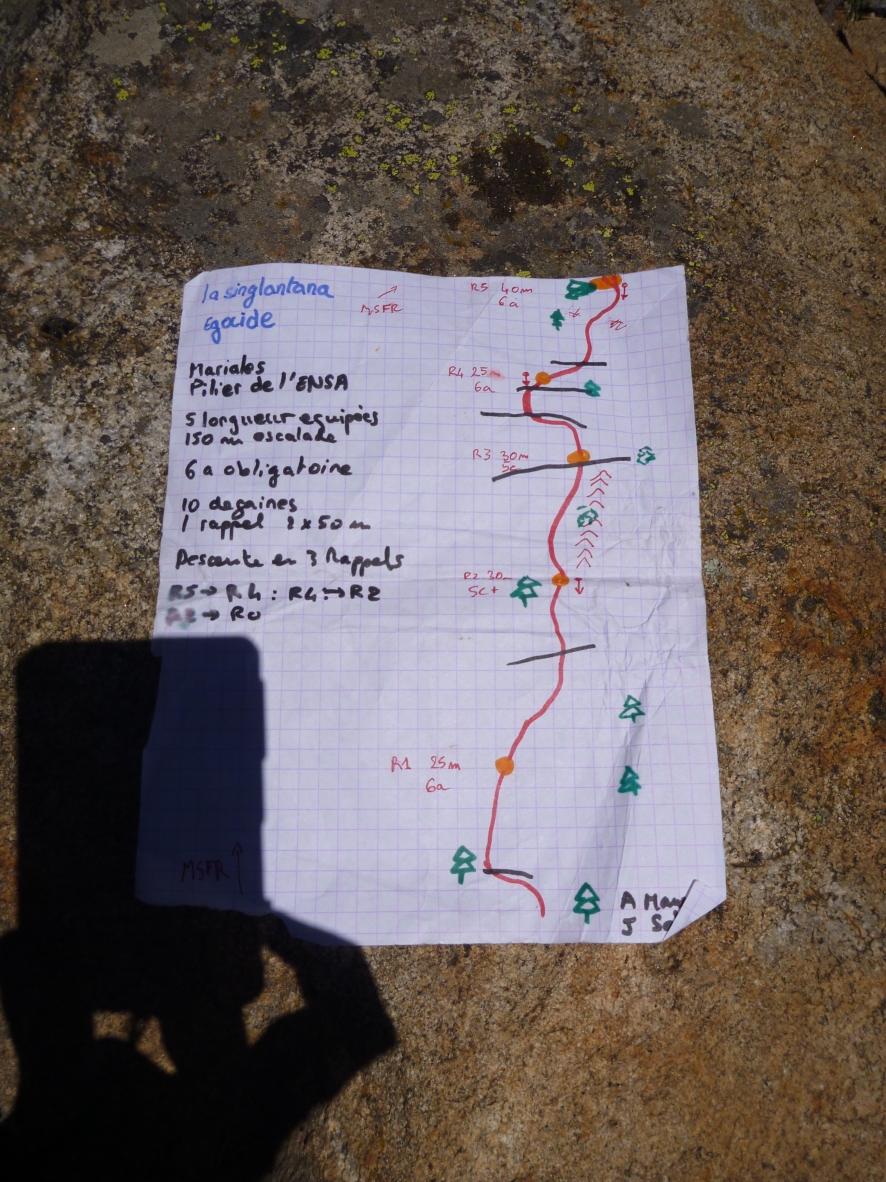 la singlantana
Egocide
Mariales
Pilier de l'ENSA
5 longueur equipées
150 m escalade
6a obligatoire
10 degaines
1 rappel 2 x 50 m
Descente en 3 Rappels
R5 → R4 : R4 → R2
R2 → R0
MSFR
R5 40m
6a
R4 25
6a
R3 30m
5c
R2 30m
5c+
R1 25m
6a
MSFR
A
J